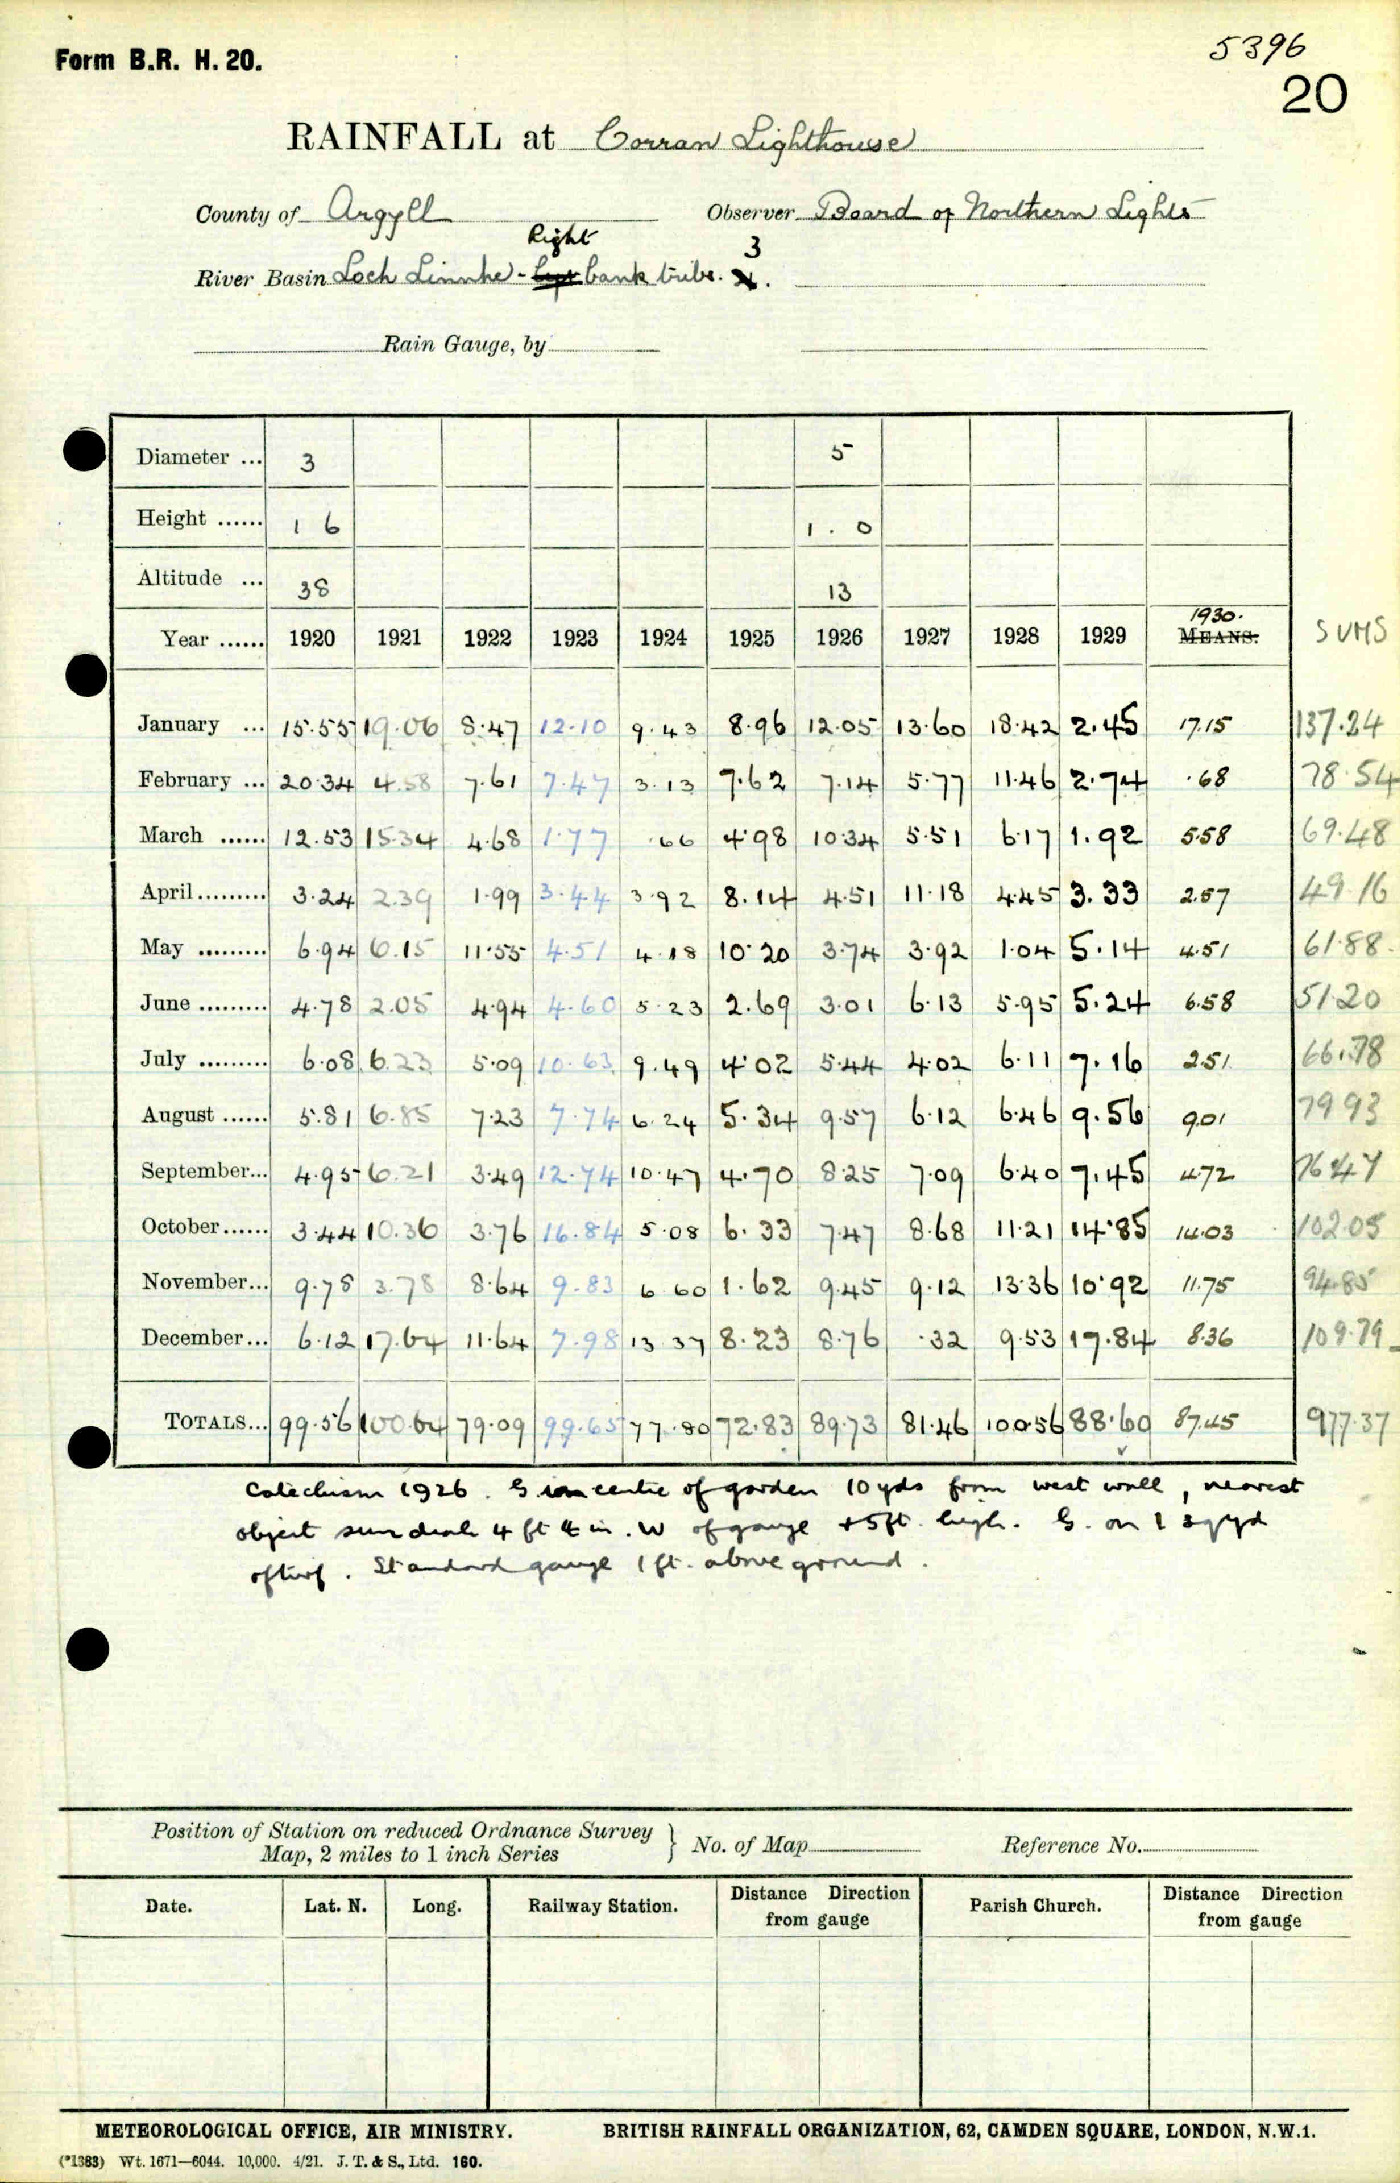 Form B.R. H. 20.
5396
20
RAINFALL at Corran Lighthouse
County of Argyll Observer Board of Northern Lights
Right 3
River Basin Loch Linnhe - Left bank tribs.
Rain Gauge, by
Diameter ... 3 5
Height ...... 1 6 1 . 0
Altitude ... 38 13
1930.
Year ...... 1920 1921 1922 1923 1924 1925 1926 1927 1928 1929 MEANS. SUMS
January ... 15.55 19.06 8.47 12.10 9.43 8.96 12.05 13.60 18.42 2.45 17.15 137.24
February ... 20.34 4.58 7.61 7.47 3.13 7.62 7.14 5.77 11.46 2.74 .68 78.54
March ...... 12.53 15.34 4.68 1.77 .66 4.98 10.34 5.51 6.17 1.92 5.58 69.48
April ......... 3.24 2.39 1.99 3.44 3.92 8.14 4.51 11.18 4.45 3.33 2.57 49.16
May ......... 6.94 6.15 11.55 4.51 4.18 10.20 3.74 3.92 1.04 5.14 4.51 61.88
June ......... 4.78 2.05 4.94 4.60 5.23 2.69 3.01 6.13 5.95 5.24 6.58 51.20
July ......... 6.08 6.23 5.09 10.63 9.49 4.02 5.44 4.02 6.11 7.16 2.51 66.78
August ...... 5.81 6.85 7.23 7.74 6.24 5.34 9.57 6.12 6.46 9.56 9.01 79.93
September... 4.95 6.21 3.49 12.74 10.47 4.70 8.25 7.09 6.40 7.45 4.72 76.47
October...... 3.44 10.36 3.76 16.84 5.08 6.33 7.47 8.68 11.21 14.85 14.03 102.05
November... 9.78 3.78 8.64 9.83 6.60 1.62 9.45 9.12 13.36 10.92 11.75 94.85
December... 6.12 17.64 11.64 7.98 13.37 8.23 8.76 .32 9.53 17.84 8.36 109.79
TOTALS... 99.56 100.64 79.09 99.65 77.80 72.83 89.73 81.46 100.56 88.60 87.45 977.37
Catechism 1926. G in centre of garden 10 yds from west wall, nearest
object sun dial 4 ft 4 in. W of gauge + 5 ft. high. G. on 1 sq yd
of turf. Standard gauge 1 ft. above ground.
Position of Station on reduced Ordnance Survey
Map, 2 miles to 1 inch Series } No. of Map Reference No.
Date. Lat. N. Long. Railway Station. Distance Direction from gauge Parish Church. Distance Direction from gauge
METEOROLOGICAL OFFICE, AIR MINISTRY. BRITISH RAINFALL ORGANIZATION, 62, CAMDEN SQUARE, LONDON, N.W.1.
(*1383) Wt. 1671—6044. 10,000. 4/21. J. T. & S., Ltd. 160.